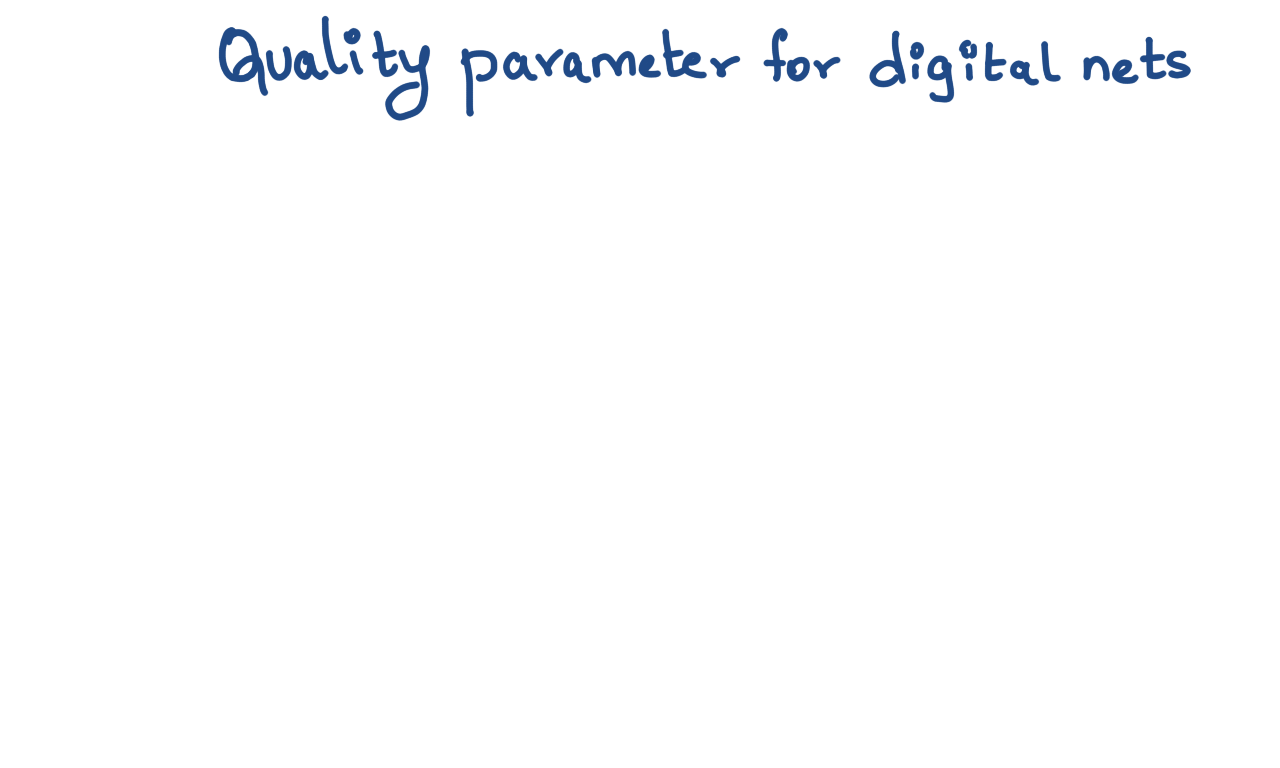 Quality parameter for digital nets